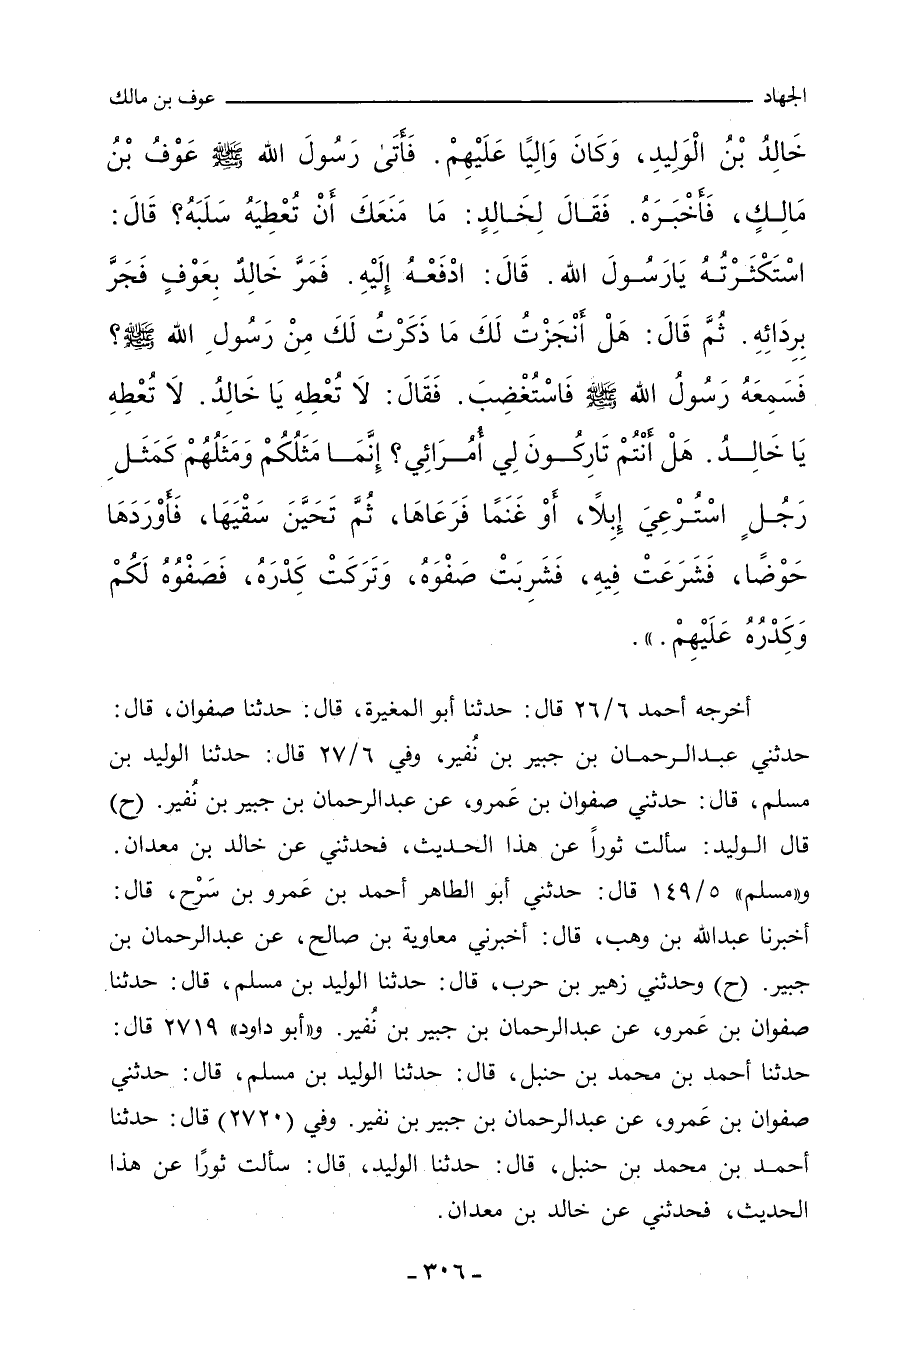 الجهاد ــــــــــــــــــــ عوف بن مالك
خَالِدُ بْنُ الْوَلِيدِ، وَكَانَ وَالِيًا عَلَيْهِمْ. فَأَتَىٰ رَسُولَ الله ﷺ عَوْفُ بْنُ
مَالِكٍ، فَأَخْبَرَهُ. فَقَالَ لِخَالِدٍ: مَا مَنَعَكَ أَنْ تُعْطِيَهُ سَلَبَهُ؟ قَالَ:
اسْتَكْثَرْتُهُ يَارَسُولَ الله. قَالَ: ادْفَعْهُ إِلَيْهِ. فَمَرَّ خَالِدٌ بِعَوْفٍ فَجَرَّ
بِرِدَائِهِ. ثُمَّ قَالَ: هَلْ أَنْجَزْتُ لَكَ مَا ذَكَرْتُ لَكَ مِنْ رَسُولِ الله ﷺ؟
فَسَمِعَهُ رَسُولُ الله ﷺ فَاسْتُغْضِبَ. فَقَالَ: لَا تُعْطِهِ يَا خَالِدُ. لَا تُعْطِهِ
يَا خَالِدُ. هَلْ أَنْتُمْ تَارِكُونَ لِي أُمَرَائِي؟ إِنَّمَا مَثَلُكُمْ وَمَثَلُهُمْ كَمَثَلِ
رَجُلٍ اسْتُرْعِيَ إِبِلًا، أَوْ غَنَمًا فَرَعَاهَا، ثُمَّ تَحَيَّنَ سَقْيَهَا، فَأَوْرَدَهَا
حَوْضًا، فَشَرَعَتْ فِيهِ، فَشَرِبَتْ صَفْوَهُ، وَتَرَكَتْ كَدْرَهُ، فَصَفْوُهُ لَكُمْ
وَكَدْرُهُ عَلَيْهِمْ.».
أخرجه أحمد ٢٦/٦ قال: حدثنا أبو المغيرة، قال: حدثنا صفوان، قال:
حدثني عبدالرحمان بن جبير بن نُفير، وفي ٢٧/٦ قال: حدثنا الوليد بن
مسلم، قال: حدثني صفوان بن عَمرو، عن عبدالرحمان بن جبير بن نُفير. (ح)
قال الوليد: سألت ثوراً عن هذا الحديث، فحدثني عن خالد بن معدان.
و«مسلم» ١٤٩/٥ قال: حدثني أبو الطاهر أحمد بن عَمرو بن سَرْح، قال:
أخبرنا عبدالله بن وهب، قال: أخبرني معاوية بن صالح، عن عبدالرحمان بن
جبير. (ح) وحدثني زهير بن حرب، قال: حدثنا الوليد بن مسلم، قال: حدثنا
صفوان بن عَمرو، عن عبدالرحمان بن جبير بن نُفير. و«أبو داود» ٢٧١٩ قال:
حدثنا أحمد بن محمد بن حنبل، قال: حدثنا الوليد بن مسلم، قال: حدثني
صفوان بن عَمرو، عن عبدالرحمان بن جبير بن نفير. وفي (٢٧٢٠) قال: حدثنا
أحمد بن محمد بن حنبل، قال: حدثنا الوليد، قال: سألت ثورًا عن هذا
الحديث، فحدثني عن خالد بن معدان.
- ٣٠٦ -